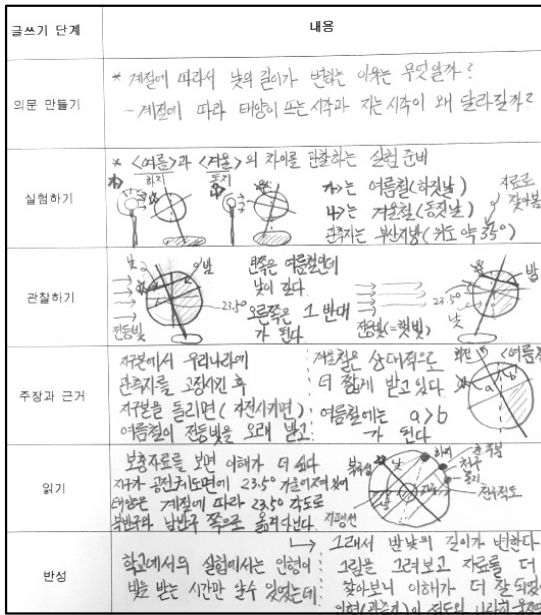 글쓰기 단계
내용
의문 만들기
* 계절에 따라서 낮의 길이가 변하는 이유는 무엇일까?
- 계절에 따라 태양이 뜨는 시각과 지는 시각이 왜 달라질까?
실험하기
* <여름>과 <겨울>의 차이를 관찰하는 실험 준비
하지
동지
가)
나)
가)는 여름철(하짓날)
나)는 겨울철(동짓날)
관측자는 부산지방(위도 약 35°)
자료로
찾아봄
관찰하기
낮
밤
23.5°
전등빛
왼쪽은 여름철인데
낮이 길다.
오른쪽은 그 반대
가 된다
전등빛(=햇빛)
23.5°
낮
밤
주장과 근거
지구본에서 우리나라에
관측자를 고정시킨 후
지구본을 돌리면(자전시키면)
여름철이 전등빛을 오래 받고
겨울철은 상대적으로
더 짧게 받고 있다.
여름철에는 a>b
가 된다
a
b
읽기
보충자료를 보면 이해가 더 쉽다
지구가 공전궤도면에 23.5° 기울어져 있어
태양은 계절에 따라 23.5° 각도로
북반구와 남반구 쪽으로 옮겨다닌다.
북극성
낮
하지
춘추분
천구
동지
천구적도
지평선
반성
학교에서의 실험에서는 인형이
빛을 받는 시간만 알수 있었는데
그래서 밤낮의 길이가 변한다
그림을 그려보고 자료를 더
찾아보니 이해가 더 잘되었